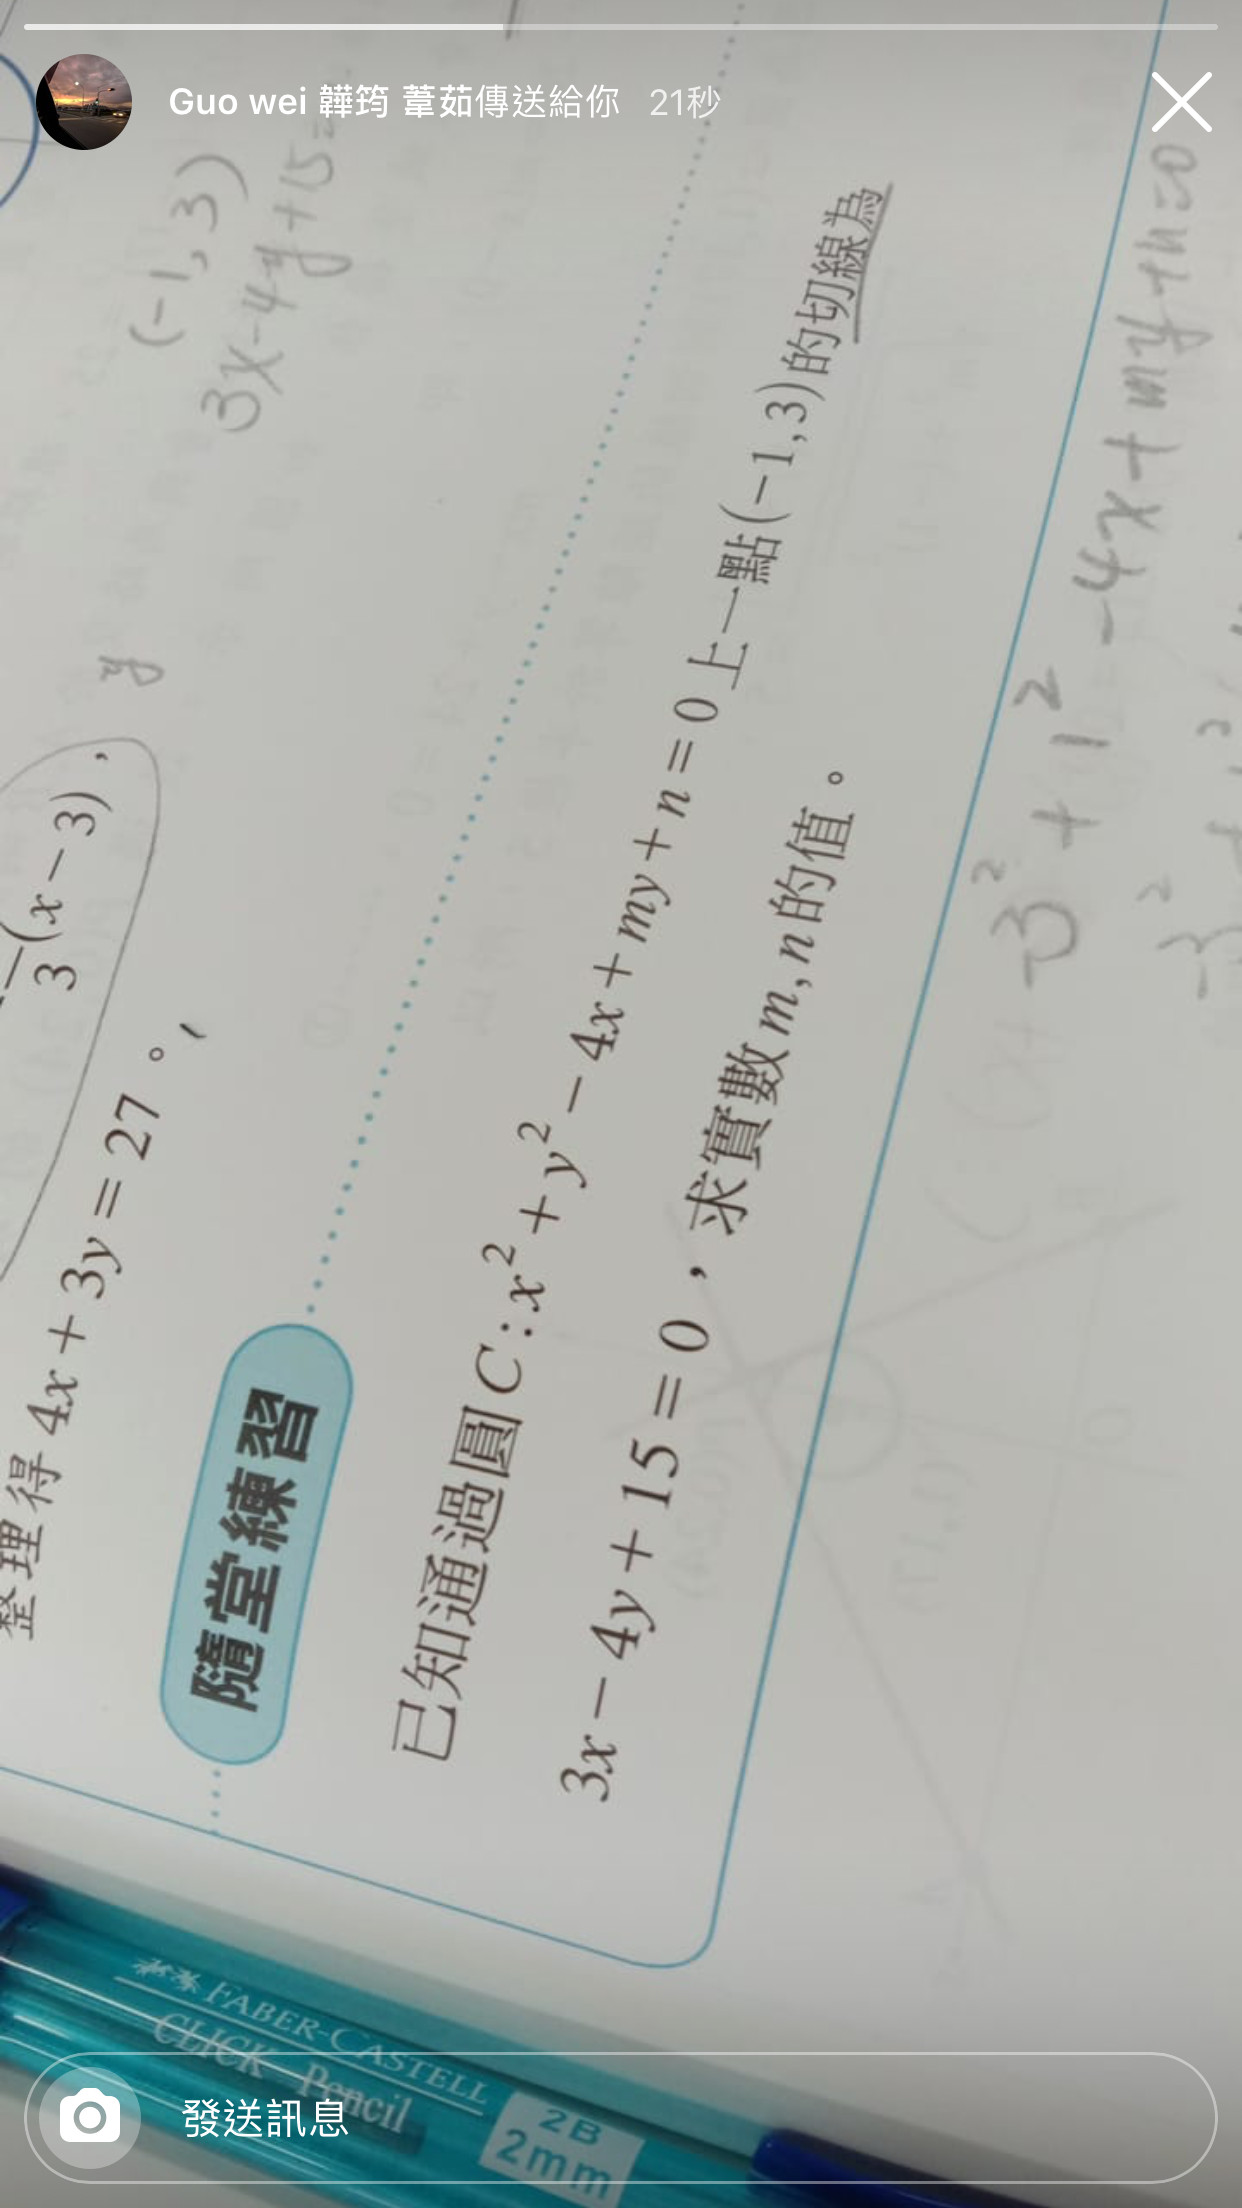 Guo wei 韡筠 葦茹傳送給你 21秒
(-1, 3)
3x-4y+15=
3(x-3),
y
整理得 4x+3y=27。
隨堂練習
已知通過圓C:x²+y²-4x+my+n=0上一點(-1,3)的切線為
3x-4y+15=0,求實數m,n的值。
-4x+my+n=0
FABER-CASTELL
CLICK Pencil
2B
2mm
發送訊息